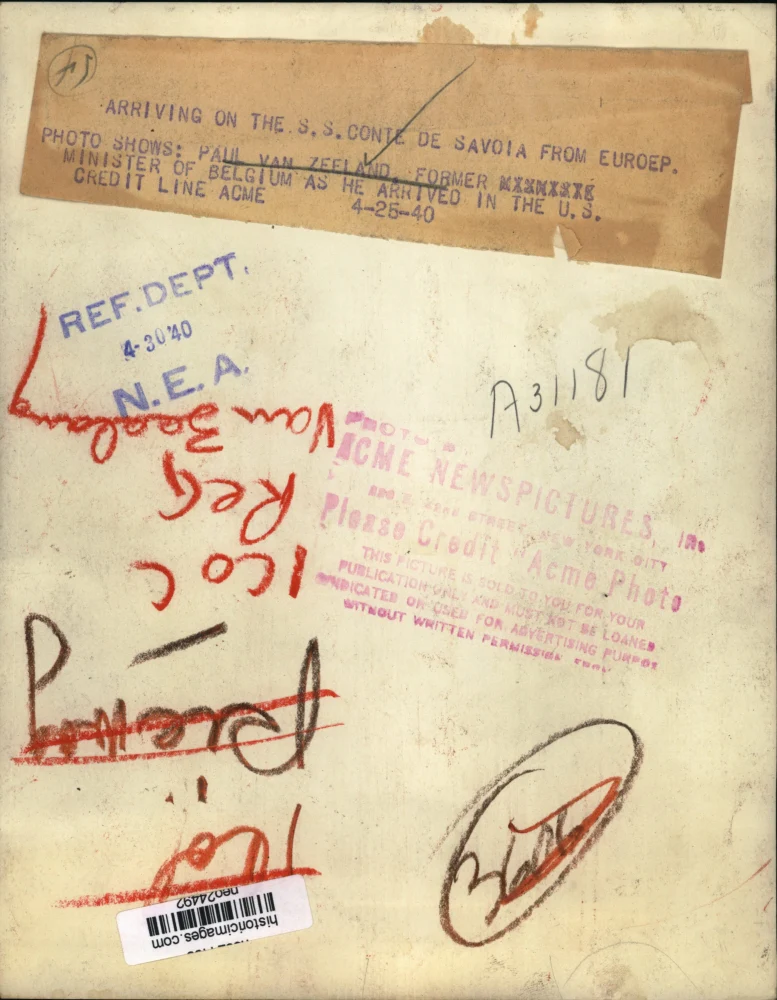 ARRIVING ON THE S.S. CONTE DE SAVOIA FROM EUROEP.
PHOTO SHOWS: PAUL VAN ZEELAND, FORMER
MINISTER OF BELGIUM AS HE ARRIVED IN THE U.S.
CREDIT LINE ACME 4-25-40
REF. DEPT.
4-30'40
N.E.A.
A31181
Van Zeeland
Reg
1 Col
PHOTO
ACME NEWSPICTURES, INC
STREET, NEW YORK CITY
Please Credit "Acme Photo
THIS PICTURE IS SOLD TO YOU FOR YOUR
PUBLICATION ONLY AND MUST NOT BE LOANED
SYNDICATED OR USED FOR ADVERTISING PURPOS
WITHOUT WRITTEN PERMISSION
historicimages.com
neo24492